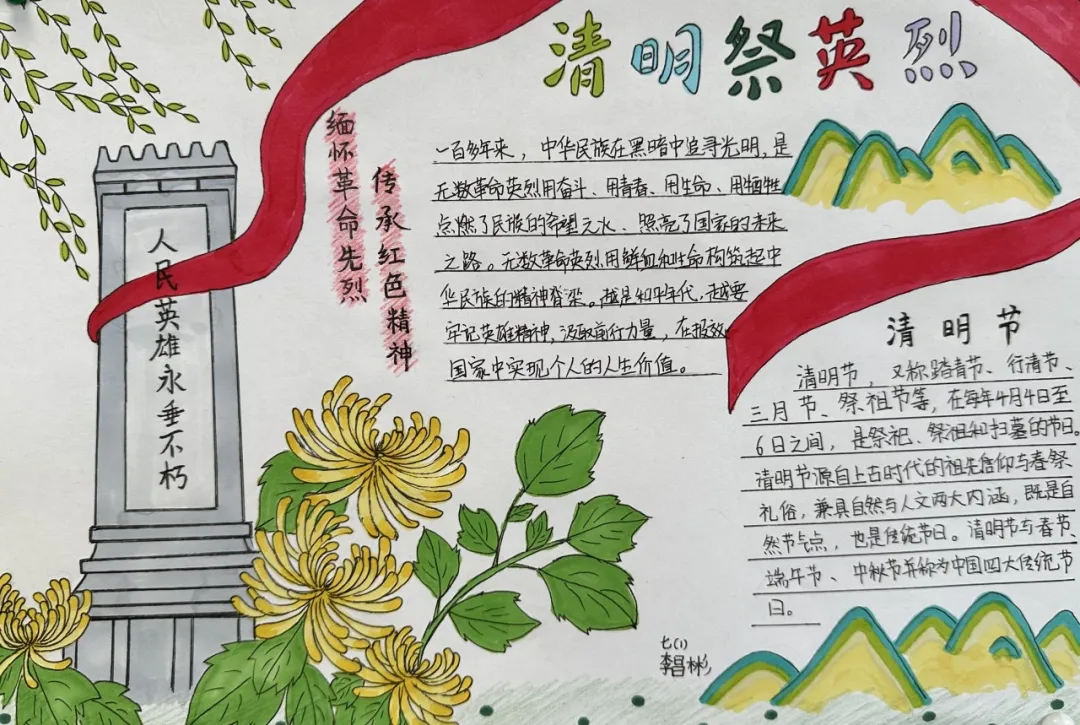 清明祭英烈
缅怀革命先烈
传承红色精神
人民英雄永垂不朽
一百多年来，中华民族在黑暗中追寻光明，是
无数革命英烈用奋斗、用青春、用生命、用牺牲
点燃了民族的希望之火、照亮了国家的未来
之路。无数革命英烈用鲜血和生命构筑起中
华民族的精神脊梁。越是和平年代，越要
牢记英雄精神，汲取前行力量，在报效
国家中实现个人的人生价值。
清明节
清明节，又称踏青节、行清节、
三月节、祭祖节等，在每年4月4日至
6日之间，是祭祀、祭祖和扫墓的节日。
清明节源自上古时代的祖先信仰与春祭
礼俗，兼具自然与人文两大内涵，既是自
然节气点，也是传统节日。清明节与春节、
端午节、中秋节并称为中国四大传统节
日。
七(1)
李昌彬